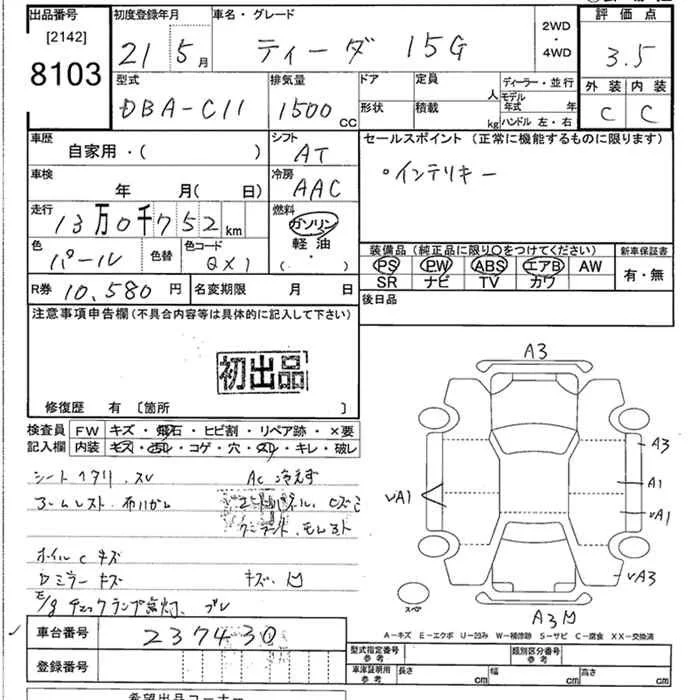 出品番号 初度登録年月 車名・グレード 2WD・4WD 評価点
[2142]
8103
21 5月 ティーダ 15G 3.5
型式 排気量 ドア 定員 人 ディーラー・並行 外装 内装
DBA-C11 1500 CC 形状 積載 kg モデル年式 年 C C
ハンドル 左・右
車歴 自家用・( ) シフト AT セールスポイント (正常に機能するものに限ります)
・インテリキー
車検 年 月( 日) 冷房 AAC
走行 13万0千752km 燃料 ガソリン
軽油
( ・ )
色 パール 色替 色コード QX1
装備品 (純正品に限り〇をつけてください) 新車保証書
PS PW ABS エアB AW 有・無
SR ナビ TV カワ
R券 10,580円 名変期限 月 日 後日品
注意事項申告欄 (不具合内容等は具体的に記入して下さい)
初出品
修復歴 有 〔箇所 〕
検査員 FW キズ・飛石・ヒビ割・リペア跡・×要
記入欄 内装 キズ・汚れ・コゲ・穴・スレ・キレ・破レ
シートヘタリ.スレ AC冷えず
ホイルCキズ
Dミラーキズ キズ.凹
E/gチェックランプ点灯.ブレ
A3
A3
A1
vA1
vA1
vA3
A3凹
スペア
A-キズ E-エクボ U-凹み W-補修跡 S-サビ C-腐食 XX-交換済
✓ 車台番号 237430
登録番号
型式指定番号 参考 類別区分番号 参考
車庫証明用 参考 長さ cm 幅 cm 高さ cm
希望出品コーナー